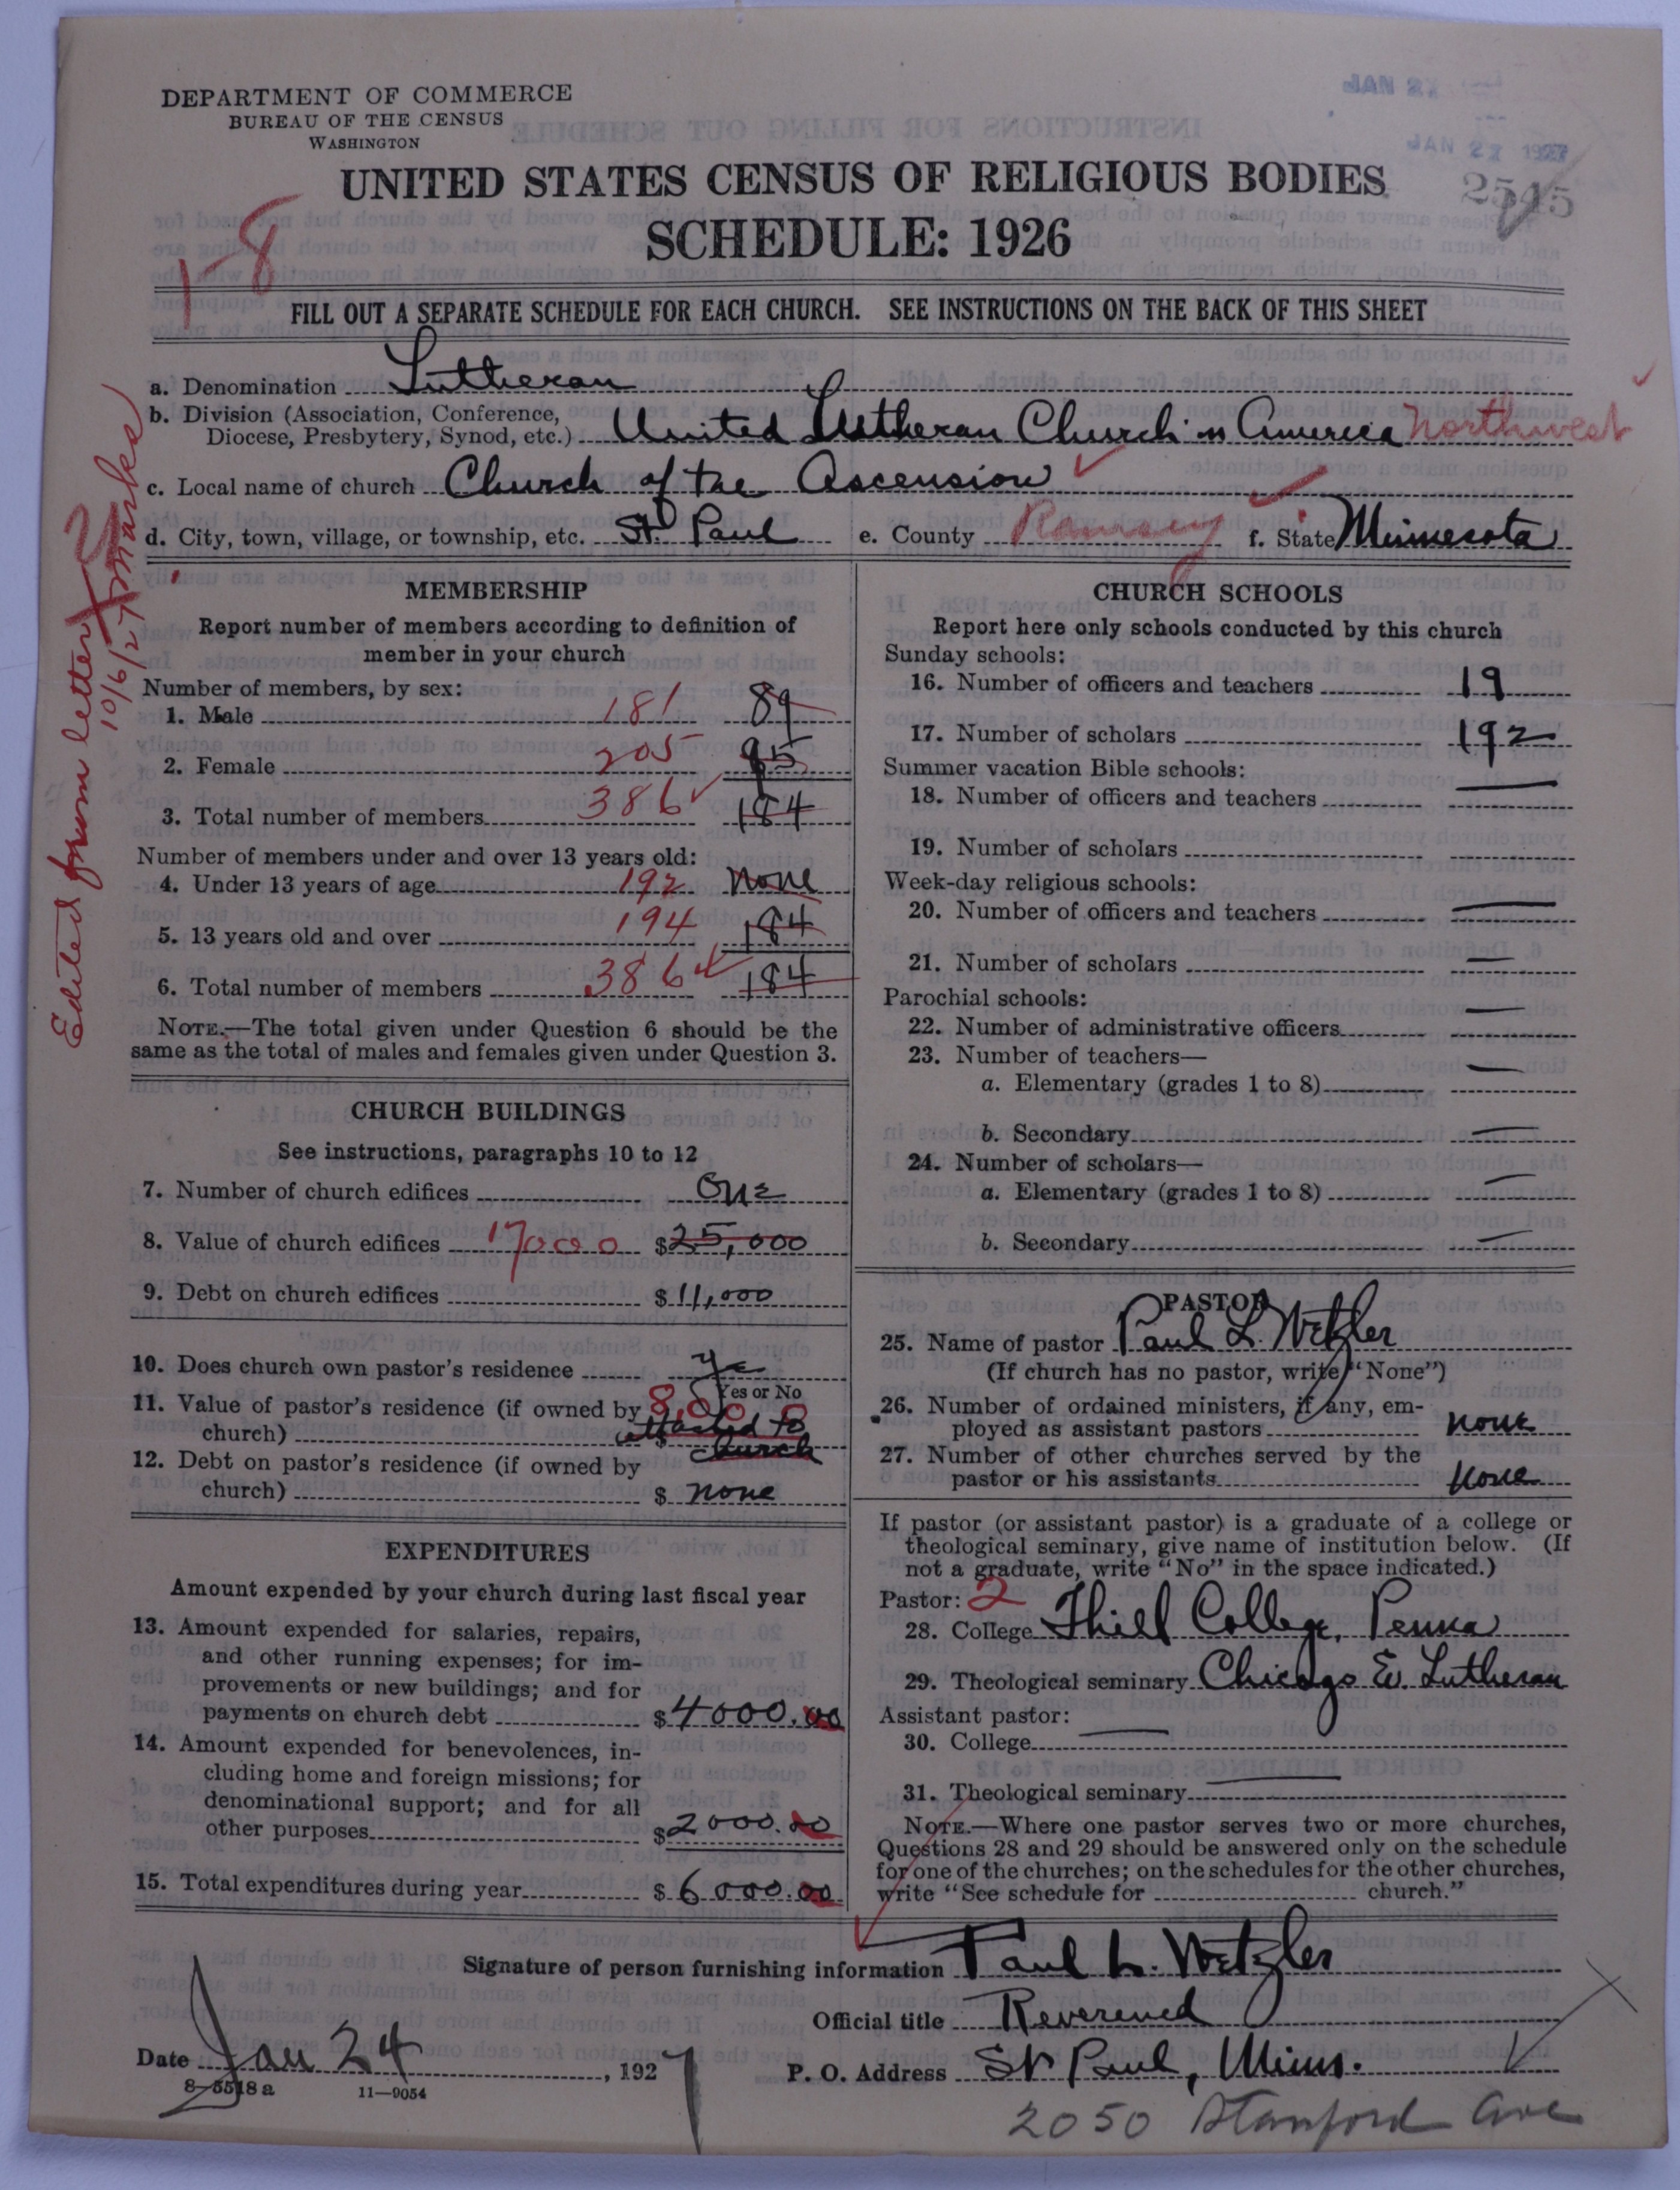 DEPARTMENT OF COMMERCE
BUREAU OF THE CENSUS
WASHINGTON
JAN 2
JAN 27 1927
UNITED STATES CENSUS OF RELIGIOUS BODIES
2545
SCHEDULE: 1926
1-8
FILL OUT A SEPARATE SCHEDULE FOR EACH CHURCH. SEE INSTRUCTIONS ON THE BACK OF THIS SHEET
a. Denomination Lutheran
b. Division (Association, Conference,
Diocese, Presbytery, Synod, etc.) United Lutheran Church in America Northwest
c. Local name of church Church of the Ascension
d. City, town, village, or township, etc. St. Paul e. County Ramsey f. State Minnesota
Edited from letter
10/6/27 Marks
MEMBERSHIP
Report number of members according to definition of
member in your church
Number of members, by sex:
1. Male 181 89
2. Female 205 95
3. Total number of members 386 184
Number of members under and over 13 years old:
4. Under 13 years of age 192 none
5. 13 years old and over 194 184
6. Total number of members 386 184
NOTE.—The total given under Question 6 should be the
same as the total of males and females given under Question 3.
CHURCH BUILDINGS
See instructions, paragraphs 10 to 12
7. Number of church edifices One
8. Value of church edifices 17000 $25,000
9. Debt on church edifices $11,000
10. Does church own pastor's residence Yes
Yes or No
11. Value of pastor's residence (if owned by 8,000
church) $ attached to
church
12. Debt on pastor's residence (if owned by
church) $ none
EXPENDITURES
Amount expended by your church during last fiscal year
13. Amount expended for salaries, repairs,
and other running expenses; for im-
provements or new buildings; and for
payments on church debt $4000.00
14. Amount expended for benevolences, in-
cluding home and foreign missions; for
denominational support; and for all
other purposes $2000.00
15. Total expenditures during year $6000.00
CHURCH SCHOOLS
Report here only schools conducted by this church
Sunday schools:
16. Number of officers and teachers 19
17. Number of scholars 192
Summer vacation Bible schools:
18. Number of officers and teachers —
19. Number of scholars
Week-day religious schools:
20. Number of officers and teachers —
21. Number of scholars —
Parochial schools:
22. Number of administrative officers —
23. Number of teachers—
a. Elementary (grades 1 to 8) —
b. Secondary —
24. Number of scholars—
a. Elementary (grades 1 to 8) —
b. Secondary —
PASTOR
25. Name of pastor Paul L. Wetzler
(If church has no pastor, write "None")
26. Number of ordained ministers, if any, em-
ployed as assistant pastors none
27. Number of other churches served by the
pastor or his assistants none
If pastor (or assistant pastor) is a graduate of a college or
theological seminary, give name of institution below. (If
not a graduate, write "No" in the space indicated.)
Pastor: 2
28. College Thiel College, Penna
29. Theological seminary Chicago Ev. Lutheran
Assistant pastor:
30. College —
31. Theological seminary —
NOTE.—Where one pastor serves two or more churches,
Questions 28 and 29 should be answered only on the schedule
for one of the churches; on the schedules for the other churches,
write "See schedule for church."
Signature of person furnishing information Paul L. Wetzler
Official title Reverend
Date Jan 24, 1927 P. O. Address St Paul, Minn.
8-5518a 11-9054
2050 Stanford Ave